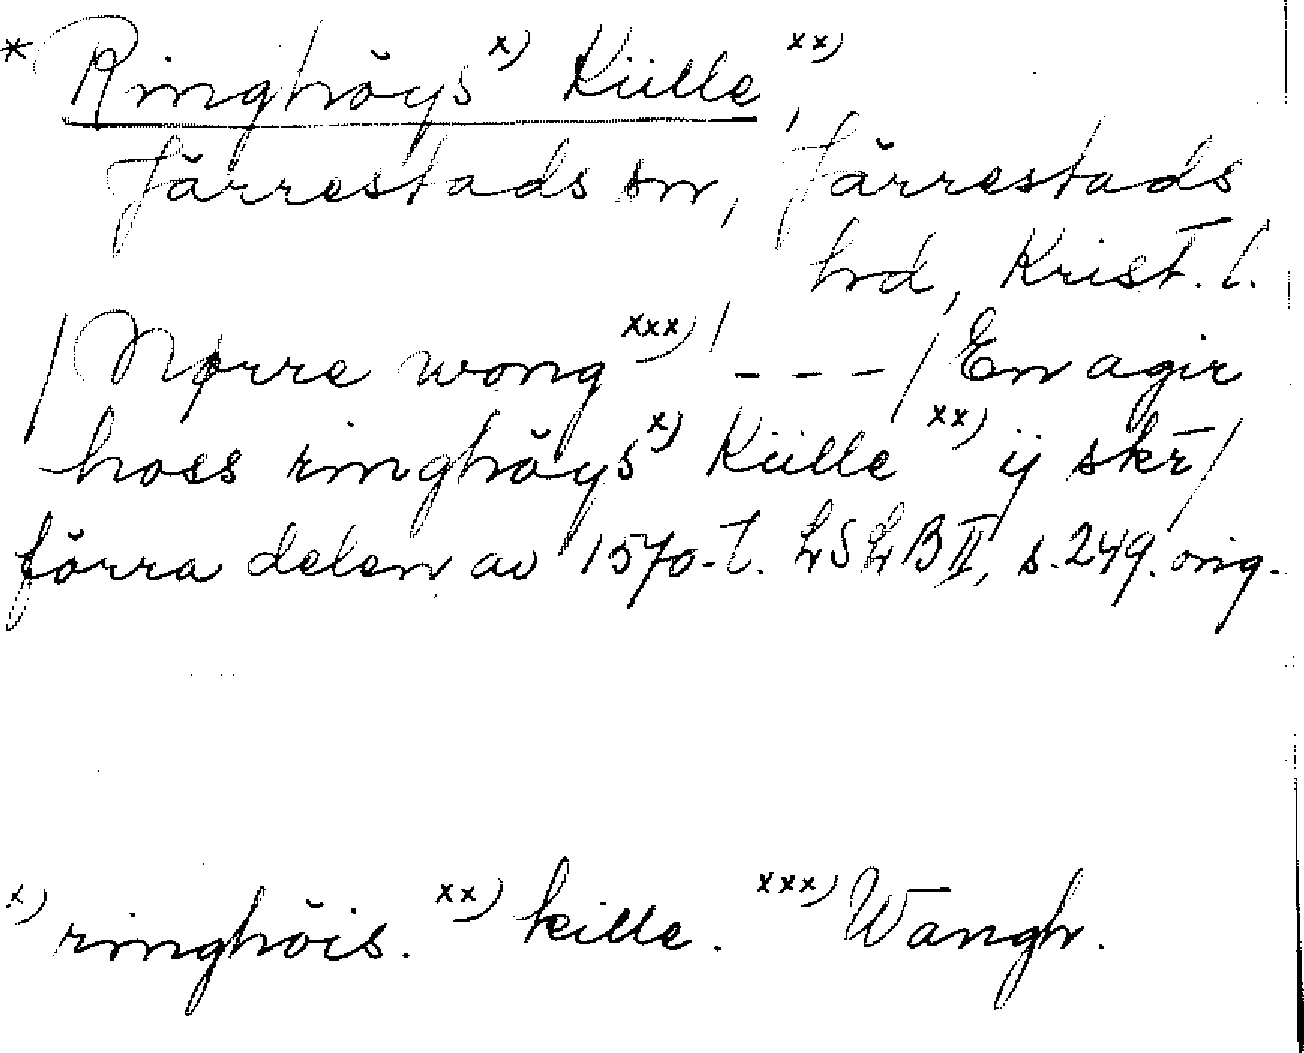 * Ringhöys x) Külle xx),
Järrestads sn, Järrestads
hd, Krist. l.
/ Nørre wong xxx) / - - - / En agir
hoss ringhöys x) Külle xx) ij skr̄ /
förra delen av 1570-t. LSLB II, s. 249. orig.
x) ringhöis. xx) kille. xxx) Wangh.